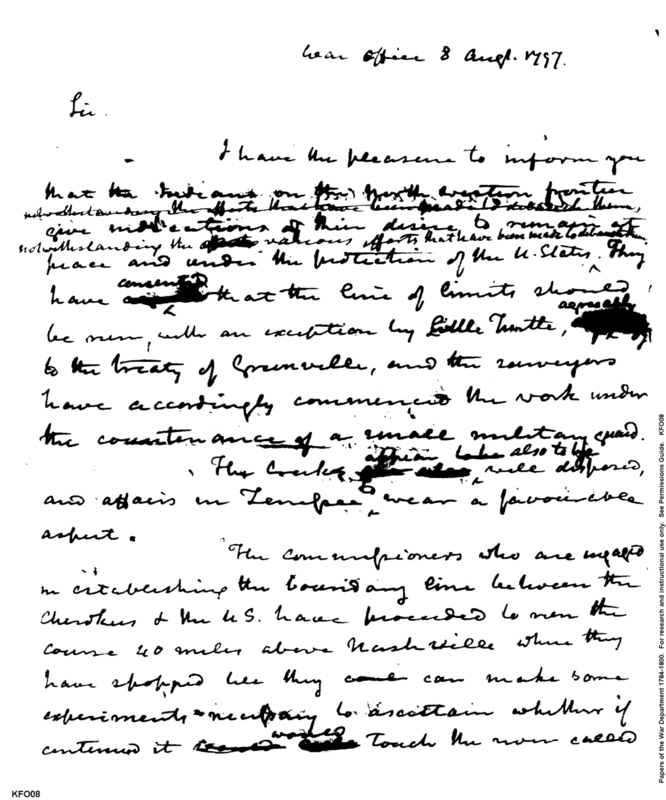 War office 8 Augt. 1797.
Sir.
I have the pleasure to inform you
that the Indians on the North western frontier
notwithstanding the efforts that have been made to disturb them,
give indications of their desire to remain at
notwithstanding the various efforts that have been made to disturb them
peace and under the protection of the U. States. They
consented
have that the line of limits should
agreeably
be run, with an exception by Little Turtle,
to the treaty of Greenville, and the surveyors
have accordingly commenced the work under
the countenance of a small military guard.
appear also to be
The Creeks, well disposed,
and affairs in Tenessee wear a favourable
aspect.
The commissioners who are engaged
in establishing the boundary line between the
Cherokees & the U.S. have proceeded to run the
course 40 miles above Nashville where they
have stopped till they can make some
experiments necessary to ascertain whether if
would
continued it touch the river called
KFO08
Papers of the War Department 1784-1800. For research and instructional use only. See Permissions Guide. KFO08